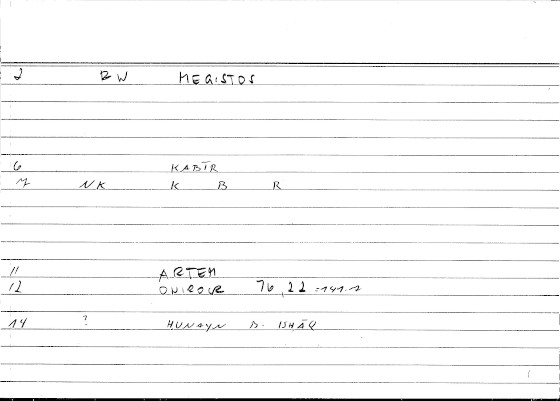 2 BW MEGISTOS
6 KABĪR
7 NK K B R
11 ARTEM
12 ONIROCR 76,22 =141.2
14 ? HUNAYN B. ISHĀQ